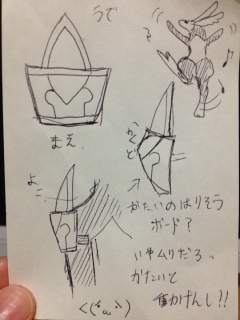 うで
まえ
かくど
よこ
かたいのはりそう
ボード？
いやムリだろ、
かたいと
動かけんし!!
<(´ω`)